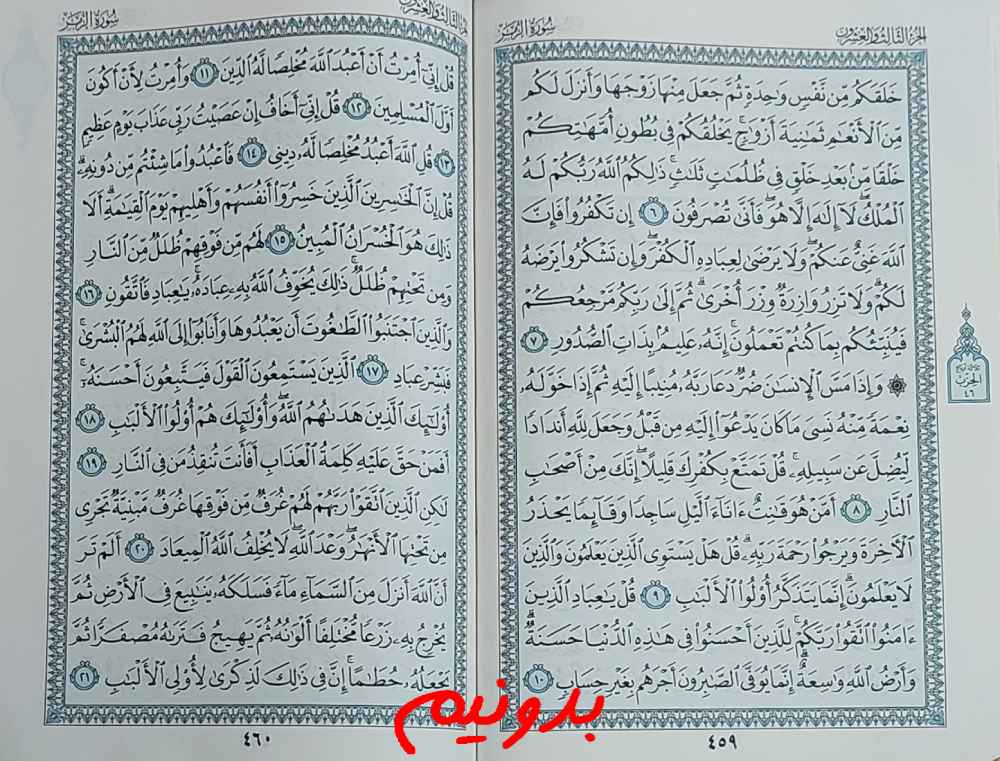 الجزء الثالث والعشرون
سورة الزمر
خَلَقَكُم مِّن نَّفْسٍ وَٰحِدَةٍ ثُمَّ جَعَلَ مِنْهَا زَوْجَهَا وَأَنزَلَ لَكُم
مِّنَ ٱلْأَنْعَٰمِ ثَمَٰنِيَةَ أَزْوَٰجٍ ۚ يَخْلُقُكُمْ فِى بُطُونِ أُمَّهَٰتِكُمْ
خَلْقًا مِّنۢ بَعْدِ خَلْقٍ فِى ظُلُمَٰتٍ ثَلَٰثٍ ۚ ذَٰلِكُمُ ٱللَّهُ رَبُّكُمْ لَهُ
ٱلْمُلْكُ ۖ لَآ إِلَٰهَ إِلَّا هُوَ ۖ فَأَنَّىٰ تُصْرَفُونَ ٦ إِن تَكْفُرُوا۟ فَإِنَّ
ٱللَّهَ غَنِىٌّ عَنكُمْ ۖ وَلَا يَرْضَىٰ لِعِبَادِهِ ٱلْكُفْرَ ۖ وَإِن تَشْكُرُوا۟ يَرْضَهُ
لَكُمْ ۗ وَلَا تَزِرُ وَازِرَةٌ وِزْرَ أُخْرَىٰ ۗ ثُمَّ إِلَىٰ رَبِّكُم مَّرْجِعُكُمْ
فَيُنَبِّئُكُم بِمَا كُنتُمْ تَعْمَلُونَ ۚ إِنَّهُۥ عَلِيمٌۢ بِذَاتِ ٱلصُّدُورِ ٧
۞ وَإِذَا مَسَّ ٱلْإِنسَٰنَ ضُرٌّ دَعَا رَبَّهُۥ مُنِيبًا إِلَيْهِ ثُمَّ إِذَا خَوَّلَهُۥ
نِعْمَةً مِّنْهُ نَسِىَ مَا كَانَ يَدْعُوٓا۟ إِلَيْهِ مِن قَبْلُ وَجَعَلَ لِلَّهِ أَندَادًا
لِّيُضِلَّ عَن سَبِيلِهِۦ ۚ قُلْ تَمَتَّعْ بِكُفْرِكَ قَلِيلًا ۖ إِنَّكَ مِنْ أَصْحَٰبِ
ٱلنَّارِ ٨ أَمَّنْ هُوَ قَٰنِتٌ ءَانَآءَ ٱلَّيْلِ سَاجِدًا وَقَآئِمًا يَحْذَرُ
ٱلْءَاخِرَةَ وَيَرْجُوا۟ رَحْمَةَ رَبِّهِۦ ۗ قُلْ هَلْ يَسْتَوِى ٱلَّذِينَ يَعْلَمُونَ وَٱلَّذِينَ
لَا يَعْلَمُونَ ۗ إِنَّمَا يَتَذَكَّرُ أُو۟لُوا۟ ٱلْأَلْبَٰبِ ٩ قُلْ يَٰعِبَادِ ٱلَّذِينَ
ءَامَنُوا۟ ٱتَّقُوا۟ رَبَّكُمْ ۚ لِلَّذِينَ أَحْسَنُوا۟ فِى هَٰذِهِ ٱلدُّنْيَا حَسَنَةٌ ۗ
وَأَرْضُ ٱللَّهِ وَٰسِعَةٌ ۗ إِنَّمَا يُوَفَّى ٱلصَّٰبِرُونَ أَجْرَهُم بِغَيْرِ حِسَابٍ ١٠
٤٥٩
الحزب
٤٦
الجزء الثالث والعشرون
سورة الزمر
قُلْ إِنِّىٓ أُمِرْتُ أَنْ أَعْبُدَ ٱللَّهَ مُخْلِصًا لَّهُ ٱلدِّينَ ١١ وَأُمِرْتُ لِأَنْ أَكُونَ
أَوَّلَ ٱلْمُسْلِمِينَ ١٢ قُلْ إِنِّىٓ أَخَافُ إِنْ عَصَيْتُ رَبِّى عَذَابَ يَوْمٍ عَظِيمٍ
١٣ قُلِ ٱللَّهَ أَعْبُدُ مُخْلِصًا لَّهُۥ دِينِى ١٤ فَٱعْبُدُوا۟ مَا شِئْتُم مِّن دُونِهِۦ ۗ
قُلْ إِنَّ ٱلْخَٰسِرِينَ ٱلَّذِينَ خَسِرُوٓا۟ أَنفُسَهُمْ وَأَهْلِيهِمْ يَوْمَ ٱلْقِيَٰمَةِ ۗ أَلَا
ذَٰلِكَ هُوَ ٱلْخُسْرَانُ ٱلْمُبِينُ ١٥ لَهُم مِّن فَوْقِهِمْ ظُلَلٌ مِّنَ ٱلنَّارِ
وَمِن تَحْتِهِمْ ظُلَلٌ ۚ ذَٰلِكَ يُخَوِّفُ ٱللَّهُ بِهِۦ عِبَادَهُۥ ۚ يَٰعِبَادِ فَٱتَّقُونِ ١٦
وَٱلَّذِينَ ٱجْتَنَبُوا۟ ٱلطَّٰغُوتَ أَن يَعْبُدُوهَا وَأَنَابُوٓا۟ إِلَى ٱللَّهِ لَهُمُ ٱلْبُشْرَىٰ ۚ
فَبَشِّرْ عِبَادِ ١٧ ٱلَّذِينَ يَسْتَمِعُونَ ٱلْقَوْلَ فَيَتَّبِعُونَ أَحْسَنَهُۥٓ ۚ
أُو۟لَٰٓئِكَ ٱلَّذِينَ هَدَىٰهُمُ ٱللَّهُ ۖ وَأُو۟لَٰٓئِكَ هُمْ أُو۟لُوا۟ ٱلْأَلْبَٰبِ ١٨
أَفَمَنْ حَقَّ عَلَيْهِ كَلِمَةُ ٱلْعَذَابِ أَفَأَنتَ تُنقِذُ مَن فِى ٱلنَّارِ ١٩
لَٰكِنِ ٱلَّذِينَ ٱتَّقَوْا۟ رَبَّهُمْ لَهُمْ غُرَفٌ مِّن فَوْقِهَا غُرَفٌ مَّبْنِيَّةٌ تَجْرِى
مِن تَحْتِهَا ٱلْأَنْهَٰرُ ۖ وَعْدَ ٱللَّهِ ۖ لَا يُخْلِفُ ٱللَّهُ ٱلْمِيعَادَ ٢٠ أَلَمْ تَرَ
أَنَّ ٱللَّهَ أَنزَلَ مِنَ ٱلسَّمَآءِ مَآءً فَسَلَكَهُۥ يَنَٰبِيعَ فِى ٱلْأَرْضِ ثُمَّ
يُخْرِجُ بِهِۦ زَرْعًا مُّخْتَلِفًا أَلْوَٰنُهُۥ ثُمَّ يَهِيجُ فَتَرَىٰهُ مُصْفَرًّا ثُمَّ
يَجْعَلُهُۥ حُطَٰمًا ۚ إِنَّ فِى ذَٰلِكَ لَذِكْرَىٰ لِأُو۟لِى ٱلْأَلْبَٰبِ ٢١
٤٦٠
بدونیم